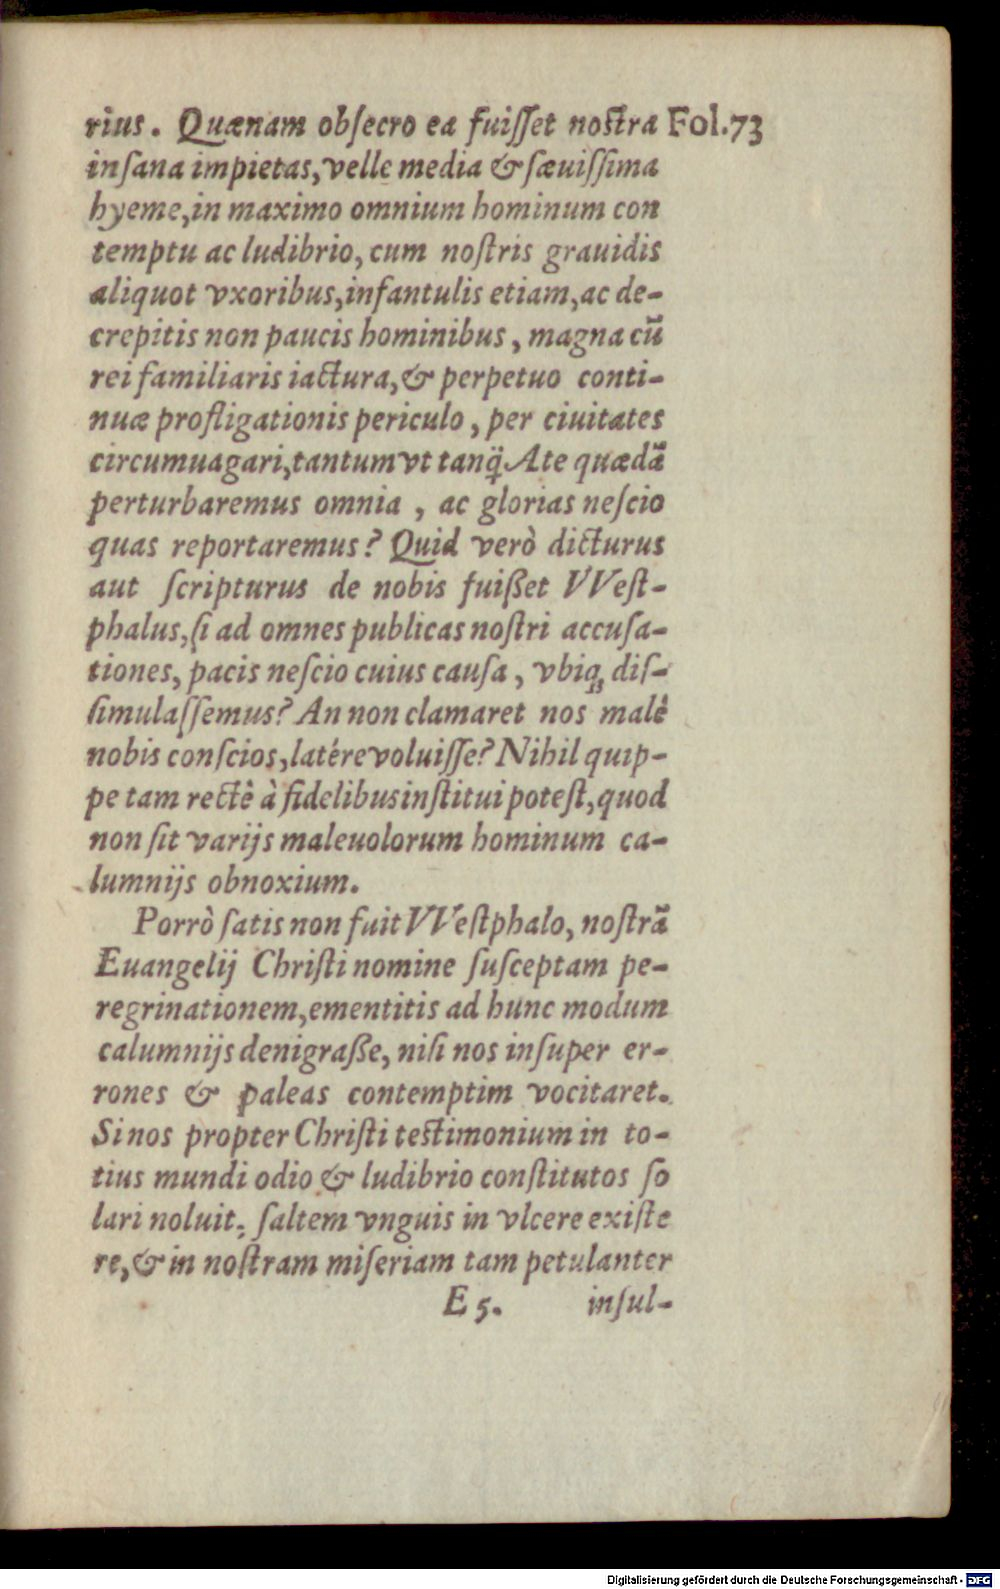 rius. Quænam obſecro ea fuiſſet noſtra Fol.73
inſana impietas, velle media & ſæuiſſima
hyeme, in maximo omnium hominum con
temptu ac ludibrio, cum noſtris grauidis
aliquot vxoribus, infantulis etiam, ac de-
crepitis non paucis hominibus, magna cū
rei familiaris iactura, & perpetuo conti-
nuæ profligationis periculo, per ciuitates
circumuagari, tantum vt tanq̃ Ate quædã
perturbaremus omnia, ac glorias neſcio
quas reportaremus? Quid verò dicturus
aut ſcripturus de nobis fuißet VVeſt-
phalus, ſi ad omnes publicas noſtri accuſa-
tiones, pacis neſcio cuius cauſa, vbiq; diſ-
ſimulaſſemus? An non clamaret nos malè
nobis conſcios, latére voluiſſe? Nihil quip-
pe tam rectè à fidelibus inſtitui poteſt, quod
non ſit varijs maleuolorum hominum ca-
lumnijs obnoxium.
Porrò ſatis non fuit VVeſtphalo, noſtrã
Euangelij Chriſti nomine ſuſceptam pe-
regrinationem, ementitis ad hunc modum
calumnijs denigraße, niſi nos inſuper er-
rones & paleas contemptim vocitaret.
Si nos propter Chriſti teſtimonium in to-
tius mundi odio & ludibrio conſtitutos ſo
lari noluit; ſaltem vnguis in vlcere exiſte
re, & in noſtram miſeriam tam petulanter
E 5. inſul-
Digitalisierung gefördert durch die Deutsche Forschungsgemeinschaft - DFG